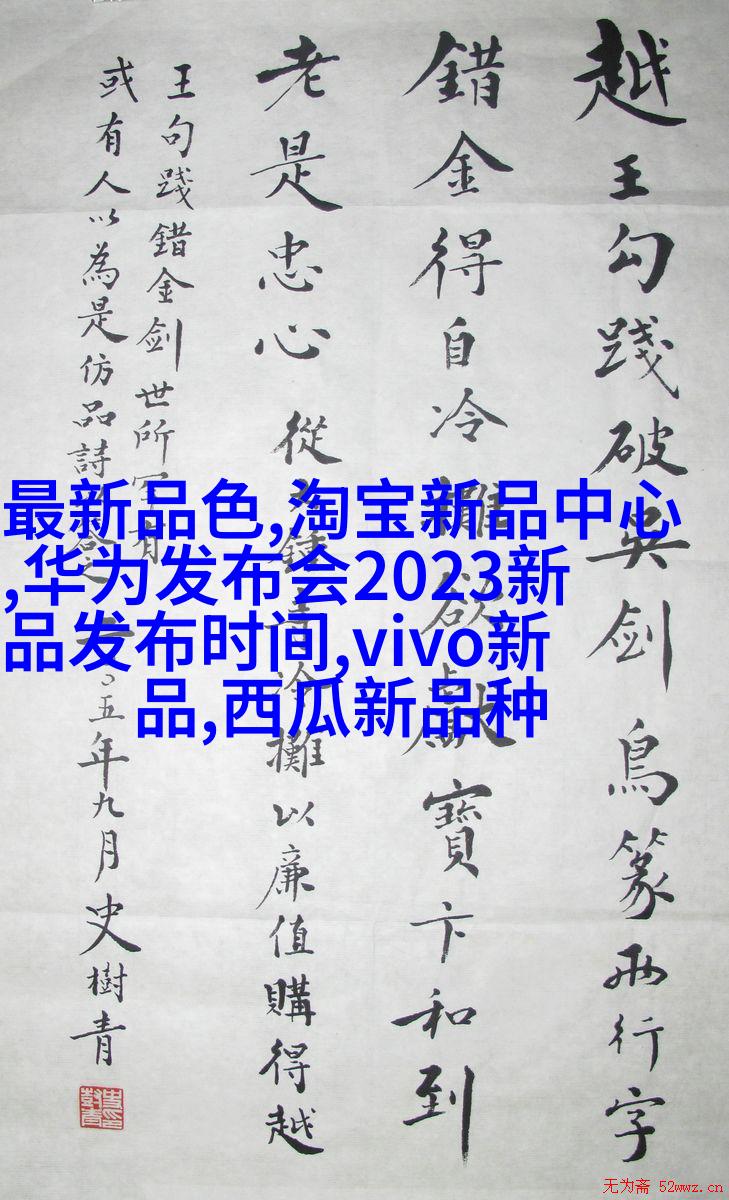 越王勾踐破吳剑鳥篆兩行字
錯金得自冷攤欲獻寶卞和到
老是忠心 從冷攤以廉值購得越
王句踐錯金剑世所罕有
或有人以為是仿品詩以答之 二〇〇五年九月史樹青
最新品色,淘宝新品中心
,华为发布会2023新
品发布时间,vivo新
品,西瓜新品种
无为斋 52wwz.cn